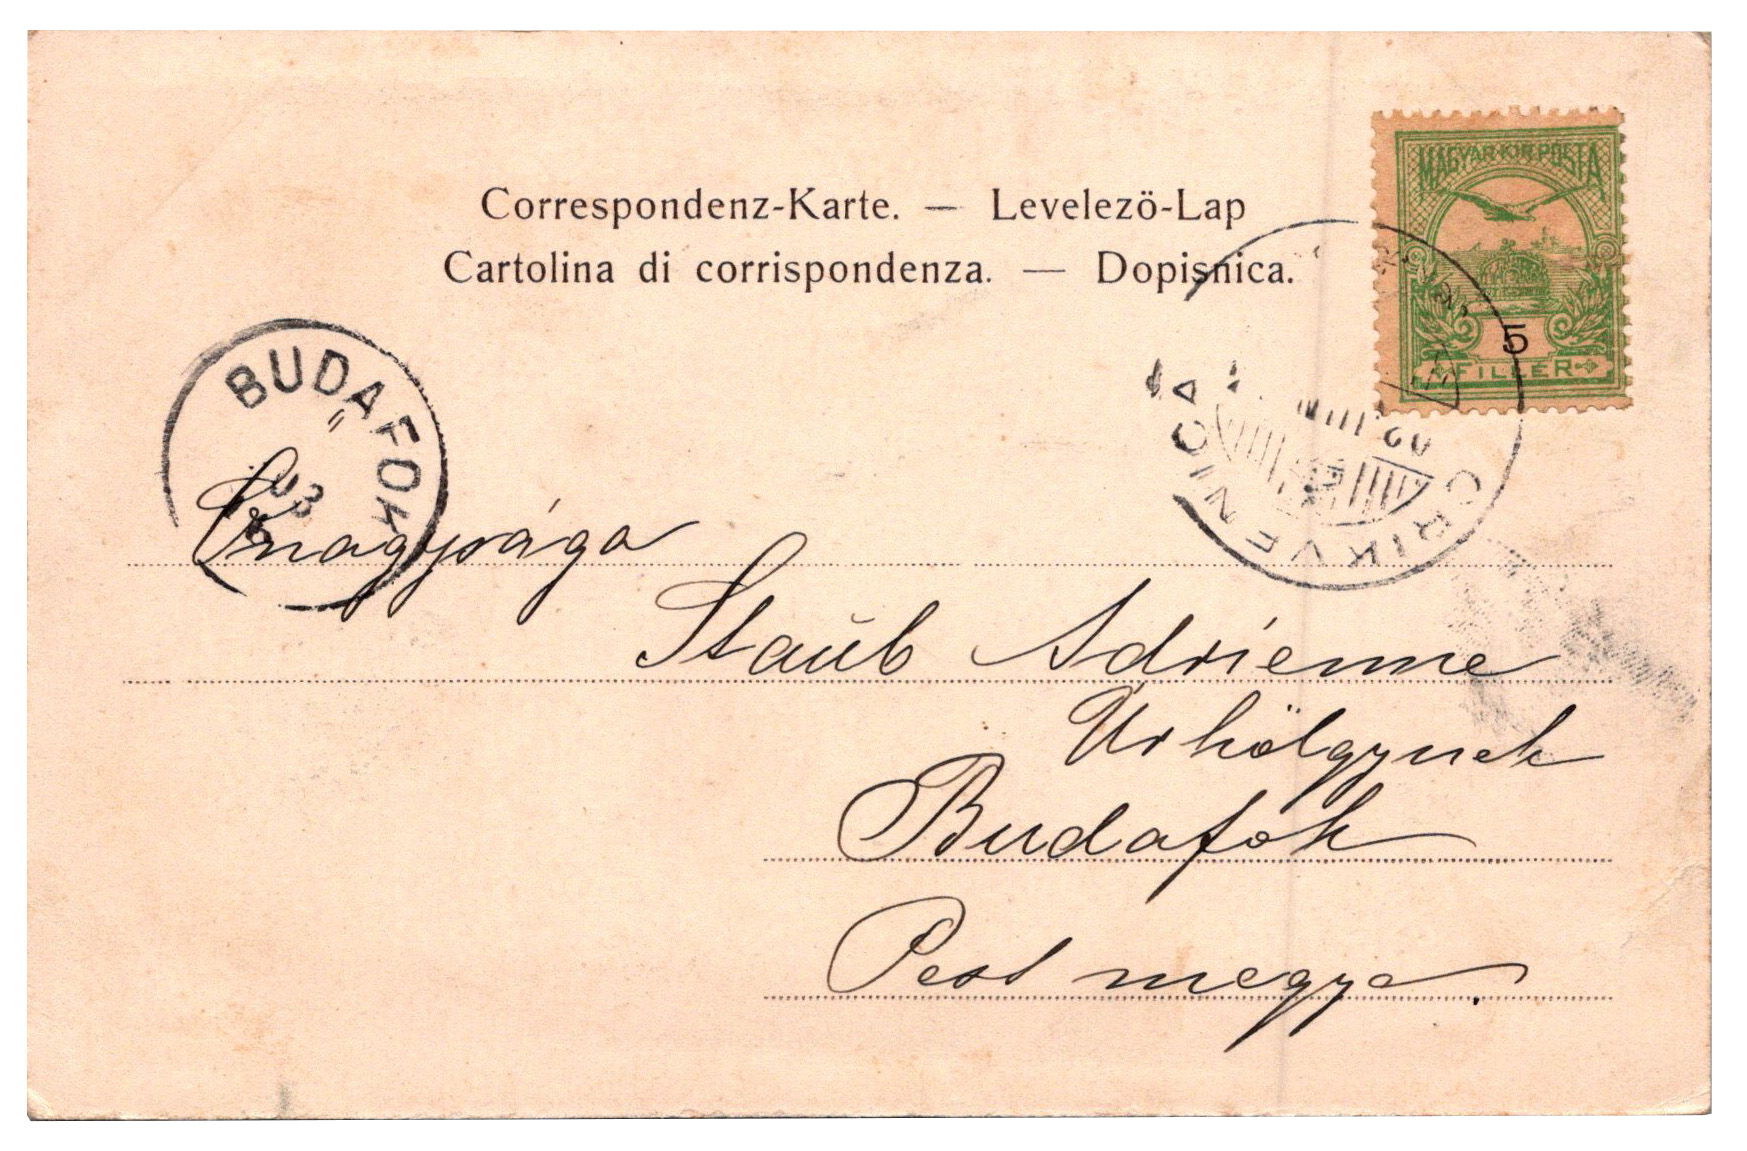 Correspondenz-Karte. — Levelezö-Lap
Cartolina di corrispondenza. — Dopisnica.
MAGYAR·KIR·POSTA
5
FILLÉR
BUDAFOK
03
CRIKVENICA
Őnagysága
Staub Adrienne
Úrhölgynek
Budafok
Pest megye.